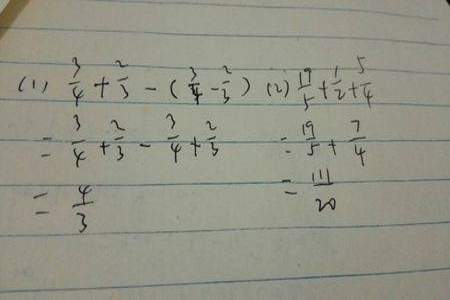 (1) 3/4 + 2/3 - (3/4 - 2/3) (2) 19/5 + 1/2 + 5/4
= 3/4 + 2/3 - 3/4 + 2/3 = 19/5 + 7/4
= 4/3 = 111/20